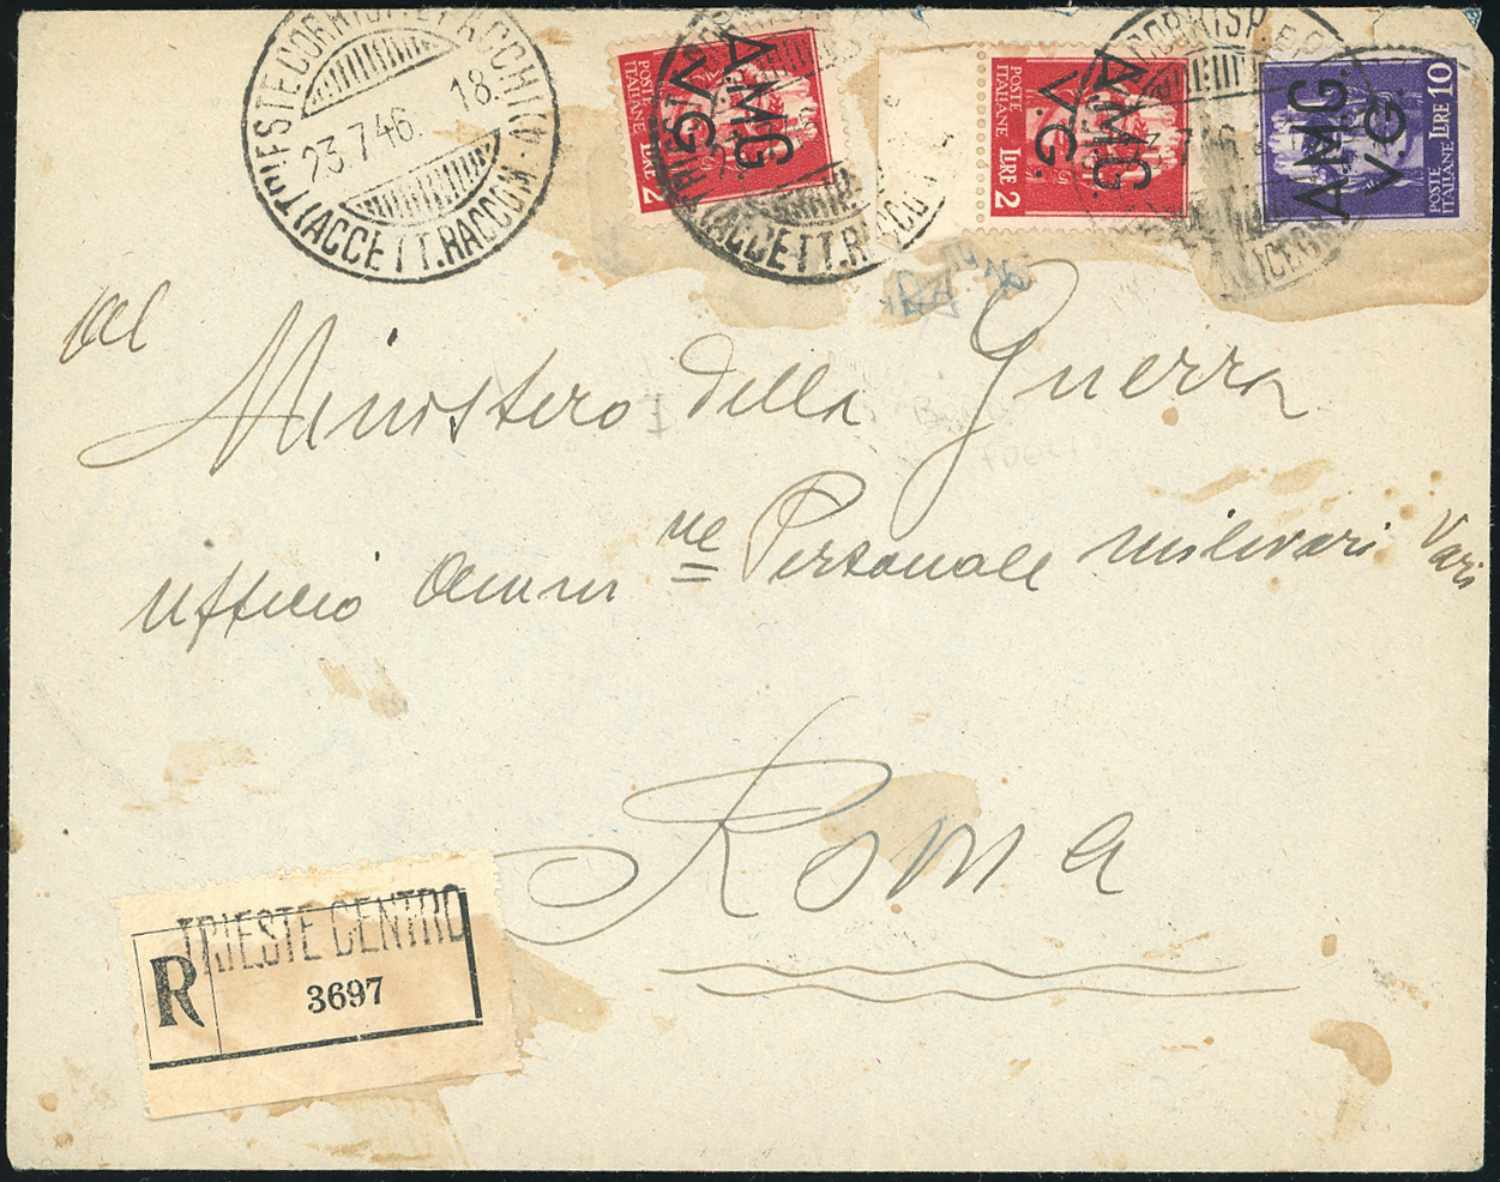 TRIESTE CORRISP. E PACCHI
(ACCETT. RACCOM.)
23.7.46. 18.
POSTE ITALIANE LIRE 2
A.M.G.
V.G.
POSTE ITALIANE LIRE 2
A.M.G.
V.G.
POSTE ITALIANE LIRE 10
A.M.G.
V.G.
(ACCETT. RACCO
Al
Ministero della Guerra
Ufficio Amm ne Personale militari Vari
Roma
TRIESTE CENTRO
R 3697